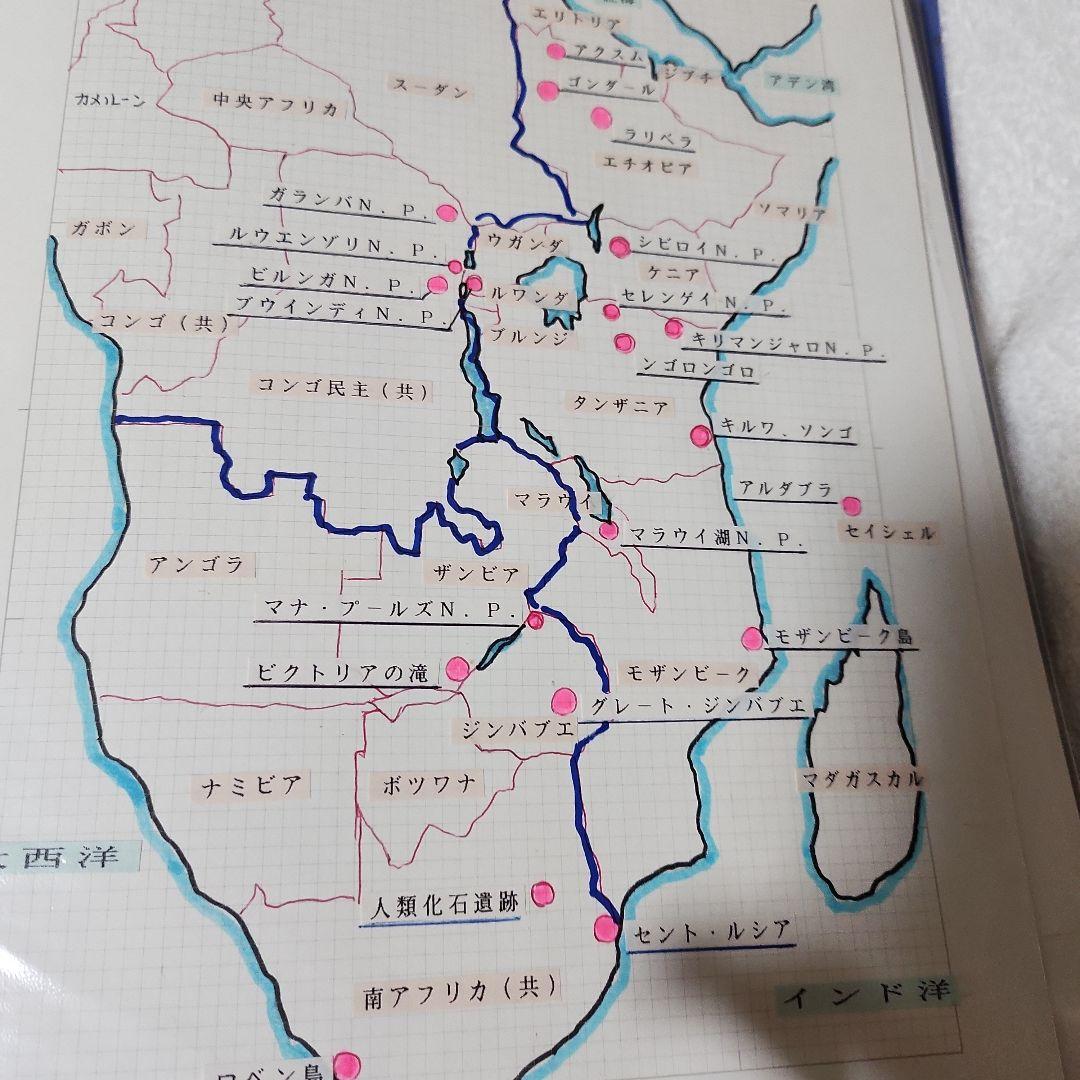 エリトリア
アクスム
ジブチ
アデン湾
スーダン
ゴンダール
カメルーン
中央アフリカ
ラリベラ
エチオピア
ガランバN．P．
ソマリア
ガボン
ルウエンゾリN．P．
ウガンダ
シビロイN．P．
ケニア
ビルンガN．P．
ルワンダ
セレンゲイN．P．
ブウインディN．P．
コンゴ（共）
ブルンジ
キリマンジャロN．P．
ンゴロンゴロ
コンゴ民主（共）
タンザニア
キルワ、ソンゴ
アルダブラ
マラウイ
セイシェル
マラウイ湖N．P．
アンゴラ
ザンビア
マナ・プールズN．P．
モザンビーク島
ビクトリアの滝
モザンビーク
グレート・ジンバブエ
ジンバブエ
ナミビア
ボツワナ
マダガスカル
西洋
人類化石遺跡
セント・ルシア
南アフリカ（共）
インド洋
ロベン島